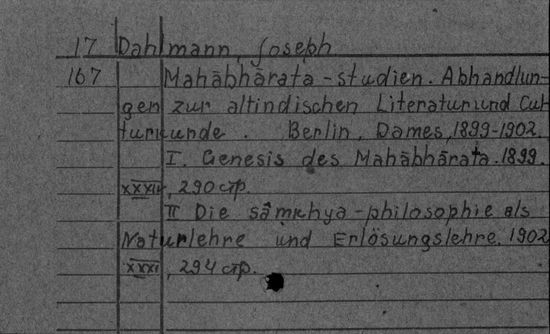 17 Dahlmann, Joseph
167 Mahābhārata-studien. Abhandlun-
gen zur altindischen Literatur und Cul-
turkunde. Berlin, Dames, 1899-1902.
I. Genesis des Mahābhārata. 1899.
XXXIV, 290 стр.
II Die sâmkhya-philosophie als
Naturlehre und Erlösungslehre. 1902
XXXI, 294 стр.